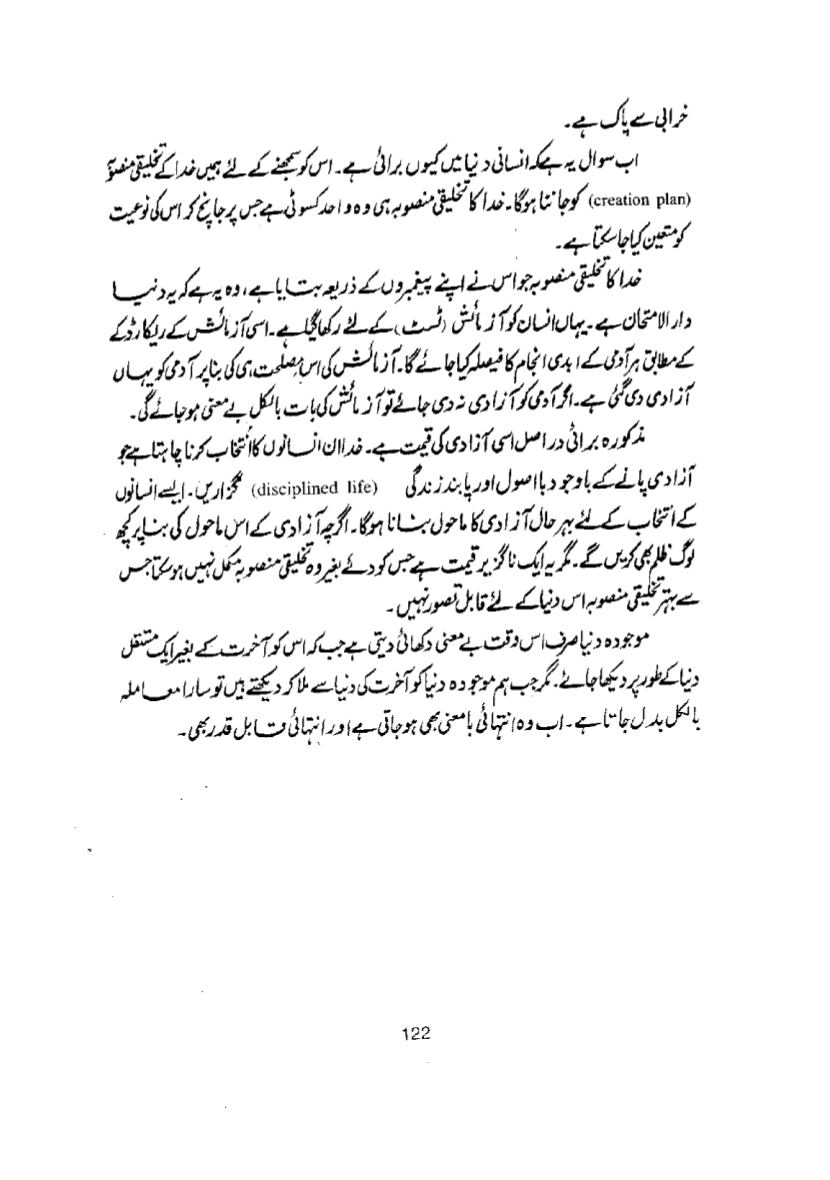 خرابی سے پاک ہے۔
اب سوال یہ ہے کہ انسانی دنیا میں کیوں برائی ہے۔ اس کو سمجھنے کے لئے ہمیں خدا کے تخلیقی منصوبہ
(creation plan) کو جاننا ہوگا۔ خدا کا تخلیقی منصوبہ ہی وہ واحد کسوٹی ہے جس پر جانچ کر اس کی نوعیت
کو متعین کیا جا سکتا ہے۔
خدا کا تخلیقی منصوبہ جو اس نے اپنے پیغمبروں کے ذریعہ بتایا ہے، وہ یہ ہے کہ یہ دنیا
دار الامتحان ہے۔ یہاں انسان کو آزمائش (ٹسٹ) کے لئے رکھا گیا ہے۔ اسی آزمائش کے ریکارڈ کے
کے مطابق ہر آدمی کے ابدی انجام کا فیصلہ کیا جائے گا۔ آزمائش کی اس مصلحت ہی کی بنا پر آدمی کو یہاں
آزادی دی گئی ہے۔ اگر آدمی کو آزادی نہ دی جائے تو آزمائش کی بات بالکل بے معنی ہو جائے گی۔
مذکورہ برائی دراصل اسی آزادی کی قیمت ہے۔ خدا ان انسانوں کا انتخاب کرنا چاہتا ہے جو
آزادی پانے کے باوجود با اصول اور پابند زندگی (disciplined life) گزاریں۔ ایسے انسانوں
کے انتخاب کے لئے بہر حال آزادی کا ماحول بنانا ہوگا۔ اگرچہ آزادی کے اس ماحول کی بنا پر کچھ
لوگ ظلم بھی کریں گے۔ مگر یہ ایک ناگزیر قیمت ہے جس کو دئے بغیر وہ تخلیقی منصوبہ مکمل نہیں ہو سکتا جس
سے بہتر تخلیقی منصوبہ اس دنیا کے لئے قابل تصور نہیں۔
موجودہ دنیا صرف اس وقت بے معنی دکھائی دیتی ہے جب کہ اس کو آخرت کے بغیر ایک مستقل
دنیا کے طور پر دیکھا جائے۔ مگر جب ہم موجودہ دنیا کو آخرت کی دنیا سے ملا کر دیکھتے ہیں تو سارا معاملہ
بالکل بدل جاتا ہے۔ اب وہ انتہائی بامعنی بھی ہو جاتی ہے اور انتہائی قابل قدر بھی۔
122